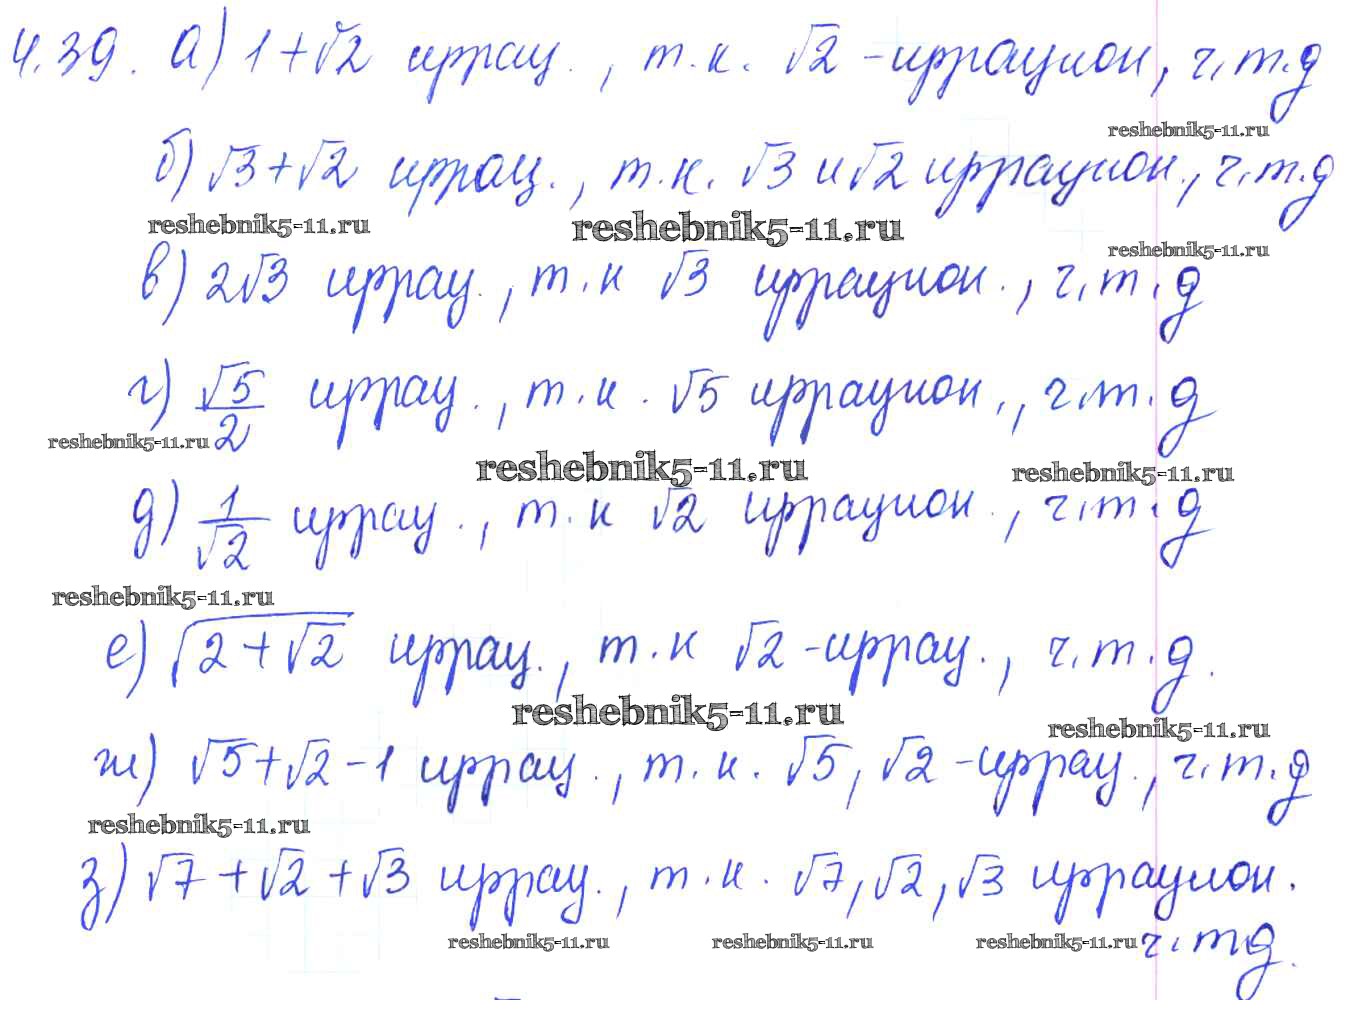 4.39. а) 1+√2 иррац., т.к. √2 - иррацион, ч.т.д
reshebnik5-11.ru
б) √3+√2 иррац., т.к. √3 и √2 иррацион., ч.т.д
reshebnik5-11.ru reshebnik5-11.ru
reshebnik5-11.ru
в) 2√3 иррац., т.к √3 иррацион., ч.т.д
г) √5/2 иррац., т.к. √5 иррацион., ч.т.д
reshebnik5-11.ru
reshebnik5-11.ru reshebnik5-11.ru
д) 1/√2 иррац., т.к √2 иррацион., ч.т.д
reshebnik5-11.ru
е) √(2+√2) иррац., т.к √2 - иррац., ч.т.д.
reshebnik5-11.ru reshebnik5-11.ru
ж) √5+√2-1 иррац., т.к. √5, √2 - иррац., ч.т.д
reshebnik5-11.ru
з) √7+√2+√3 иррац., т.к. √7, √2, √3 иррацион.
reshebnik5-11.ru reshebnik5-11.ru reshebnik5-11.ru
ч.тд.